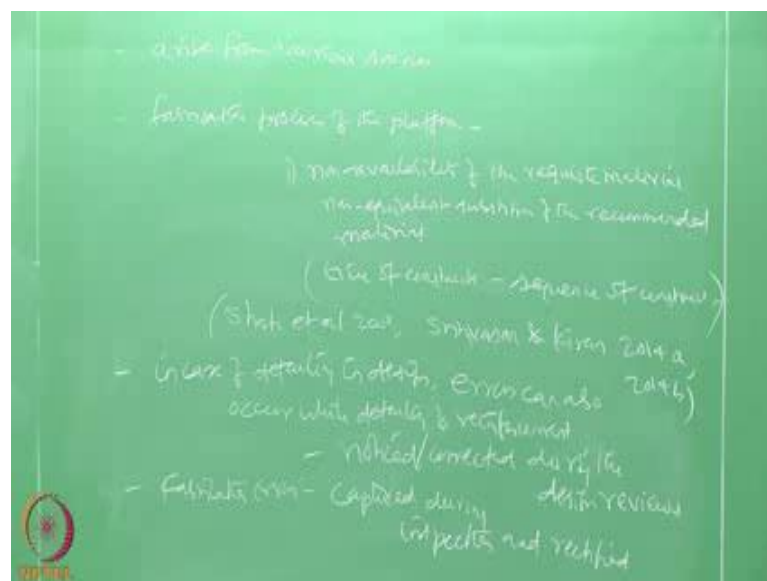 - arise from various sources
- fabrication process of the platform -
i) non-availability of the requisite material
non-equivalent substitution of the recommended
material
(time of construction - sequence of construction)
(Shah et al 2005, & Kiran 2014 a,
2014b)
- in case of detailing in design, errors can also
occur while detailing of reinforcement
- noticed/corrected during the
design reviews
- Fabrication error - captured during
inspection and rectified
NPTEL